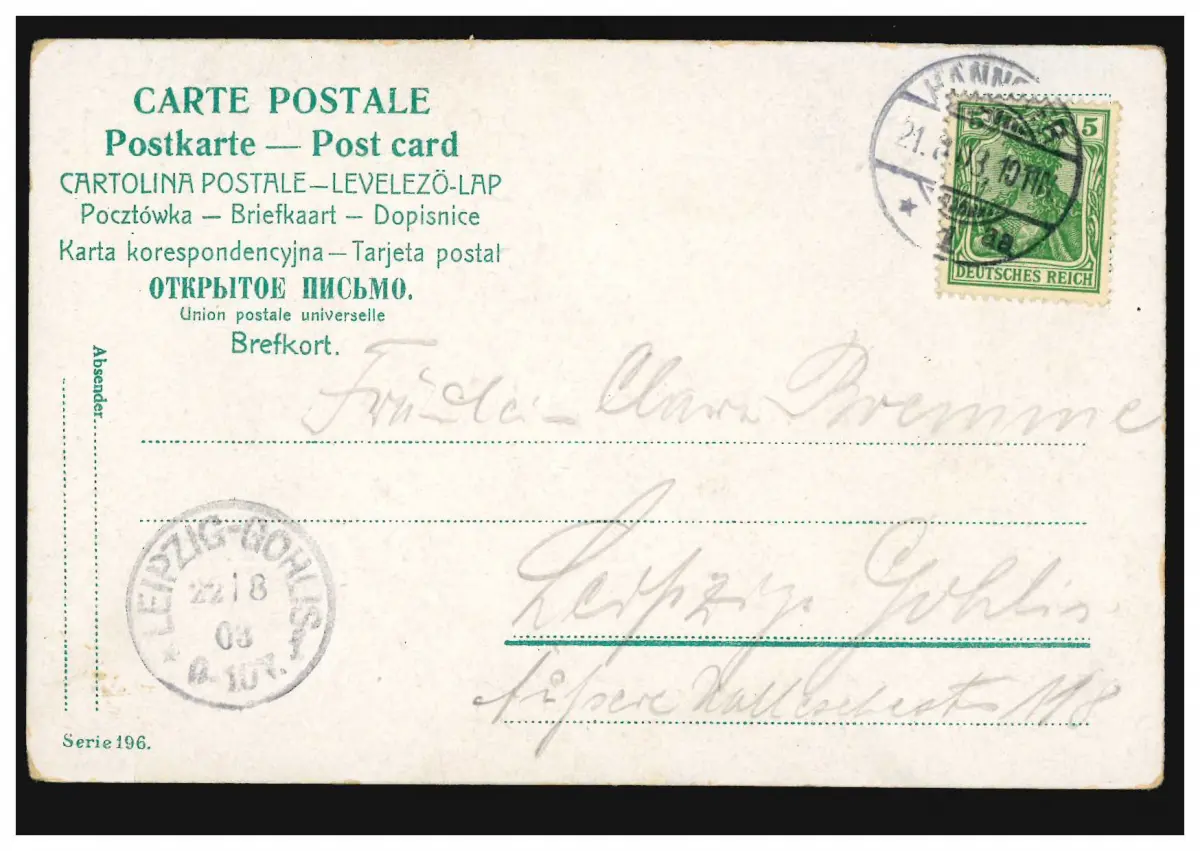 CARTE POSTALE
Postkarte — Post card
CARTOLINA POSTALE—LEVELEZÖ-LAP
Pocztówka — Briefkaart — Dopisnice
Karta korespondencyjna — Tarjeta postal
ОТКРЫТОЕ ПИСЬМО.
Union postale universelle
Brefkort.
HANNOVER
21. 8. 03. 10-11V.
1 aa
5 5
DEUTSCHES REICH
Absender
Fräulein Clara Bremme
Leipzig Gohlis
Äußere Hallesche str 118
LEIPZIG-GOHLIS
22 8
03
9-10V.
Serie 196.